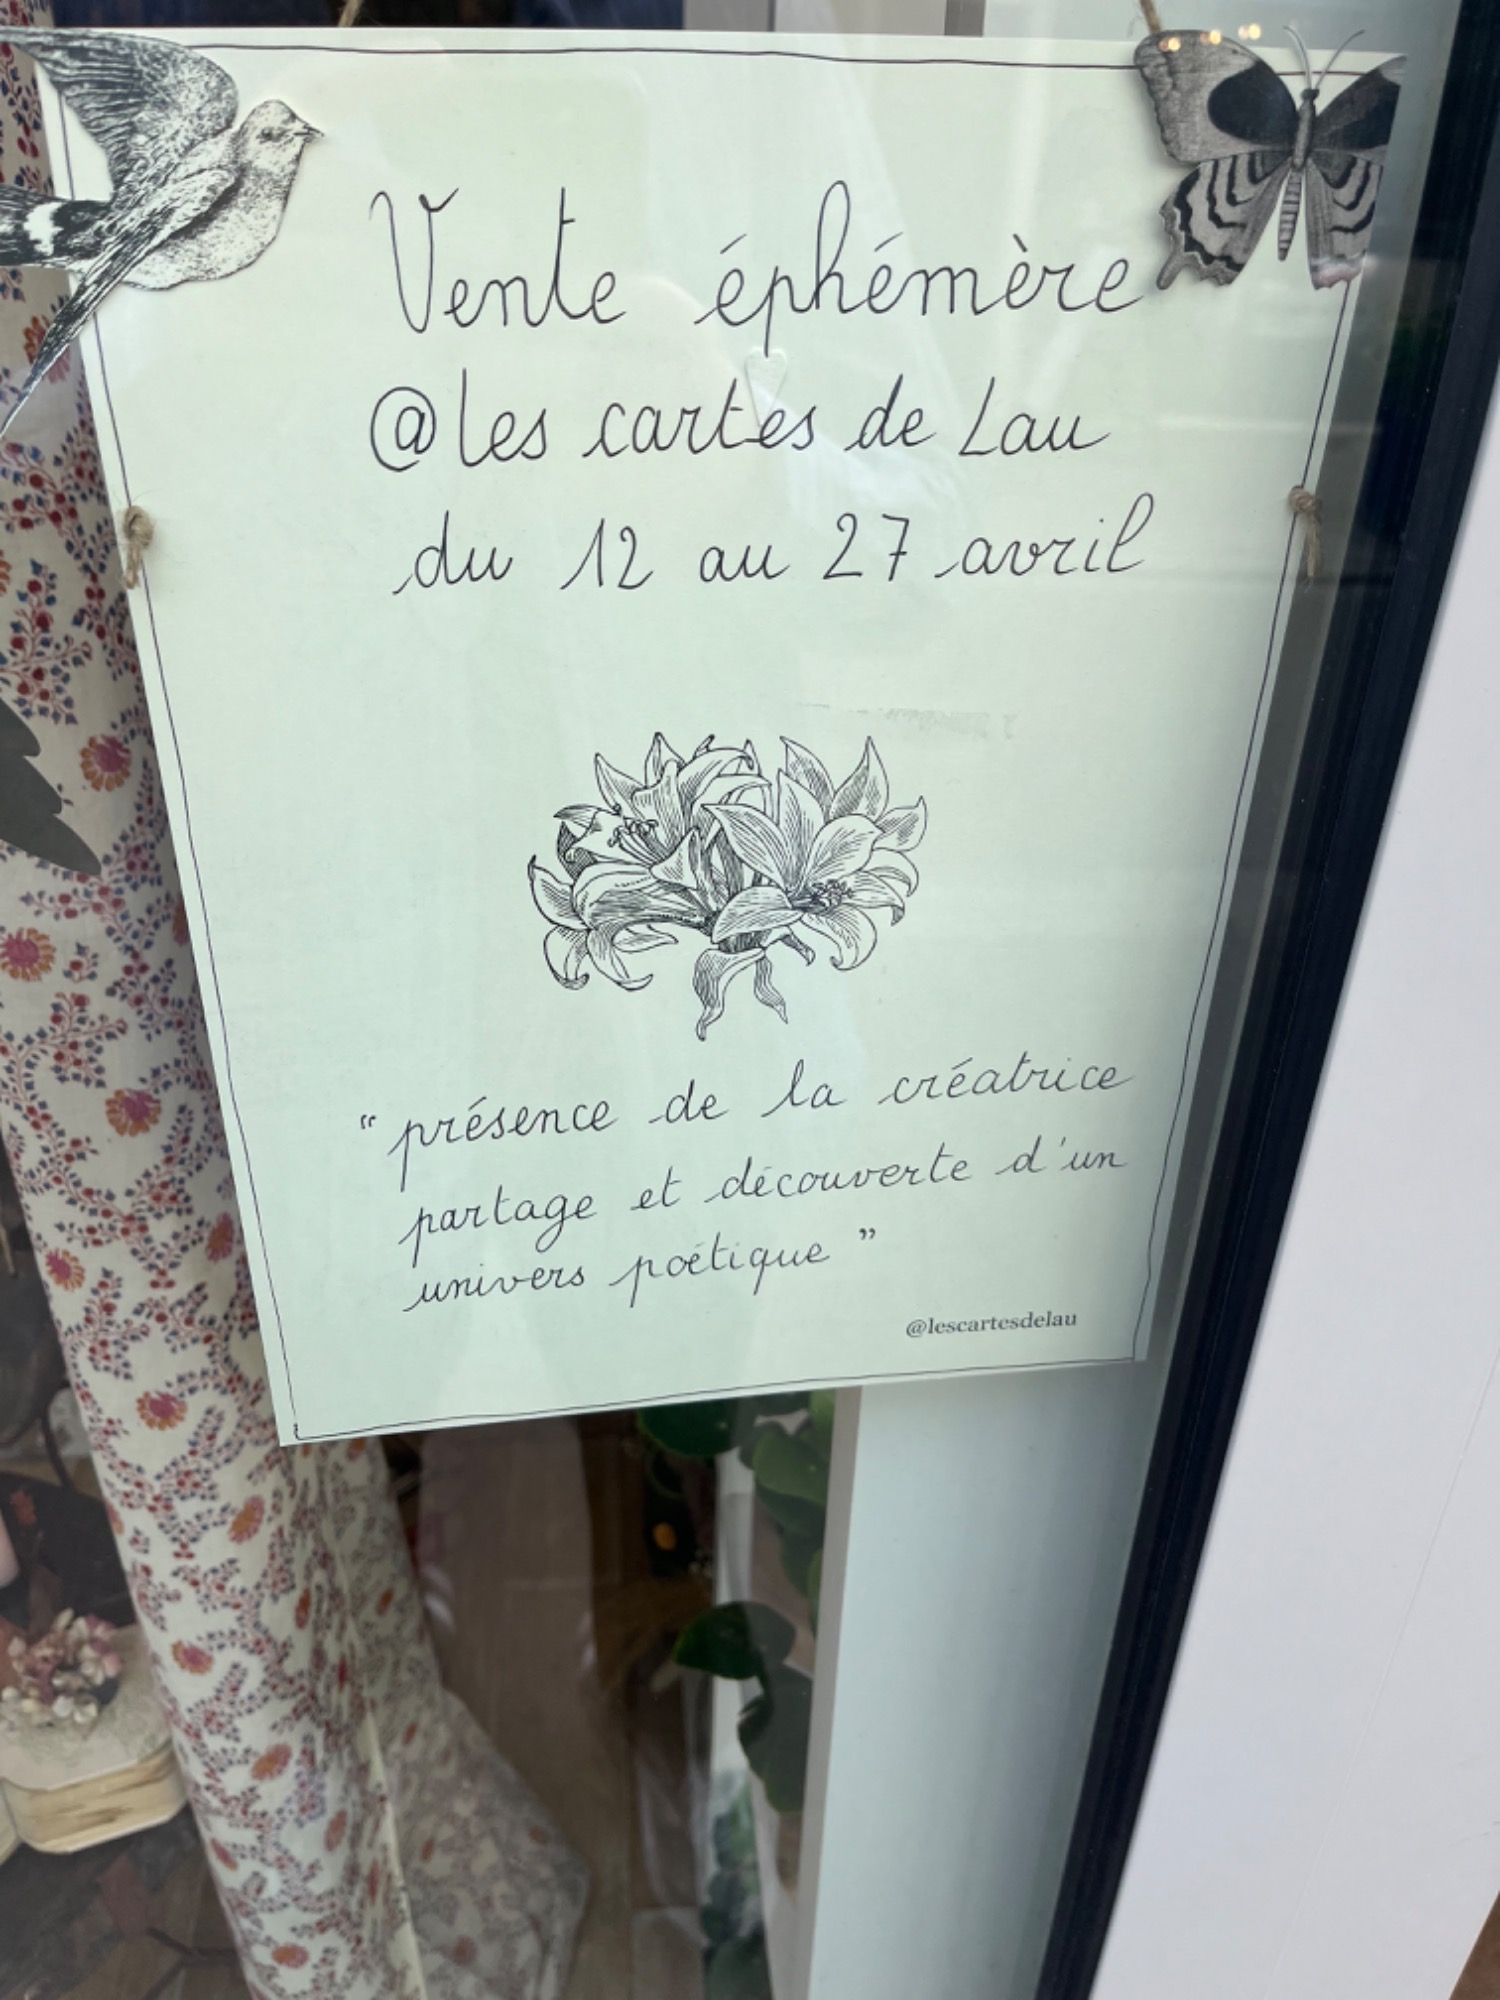 Vente éphémère
@les cartes de Lau
du 12 au 27 avril
“ présence de la créatrice
partage et découverte d'un
univers poëtique ”
@lescartesdelau